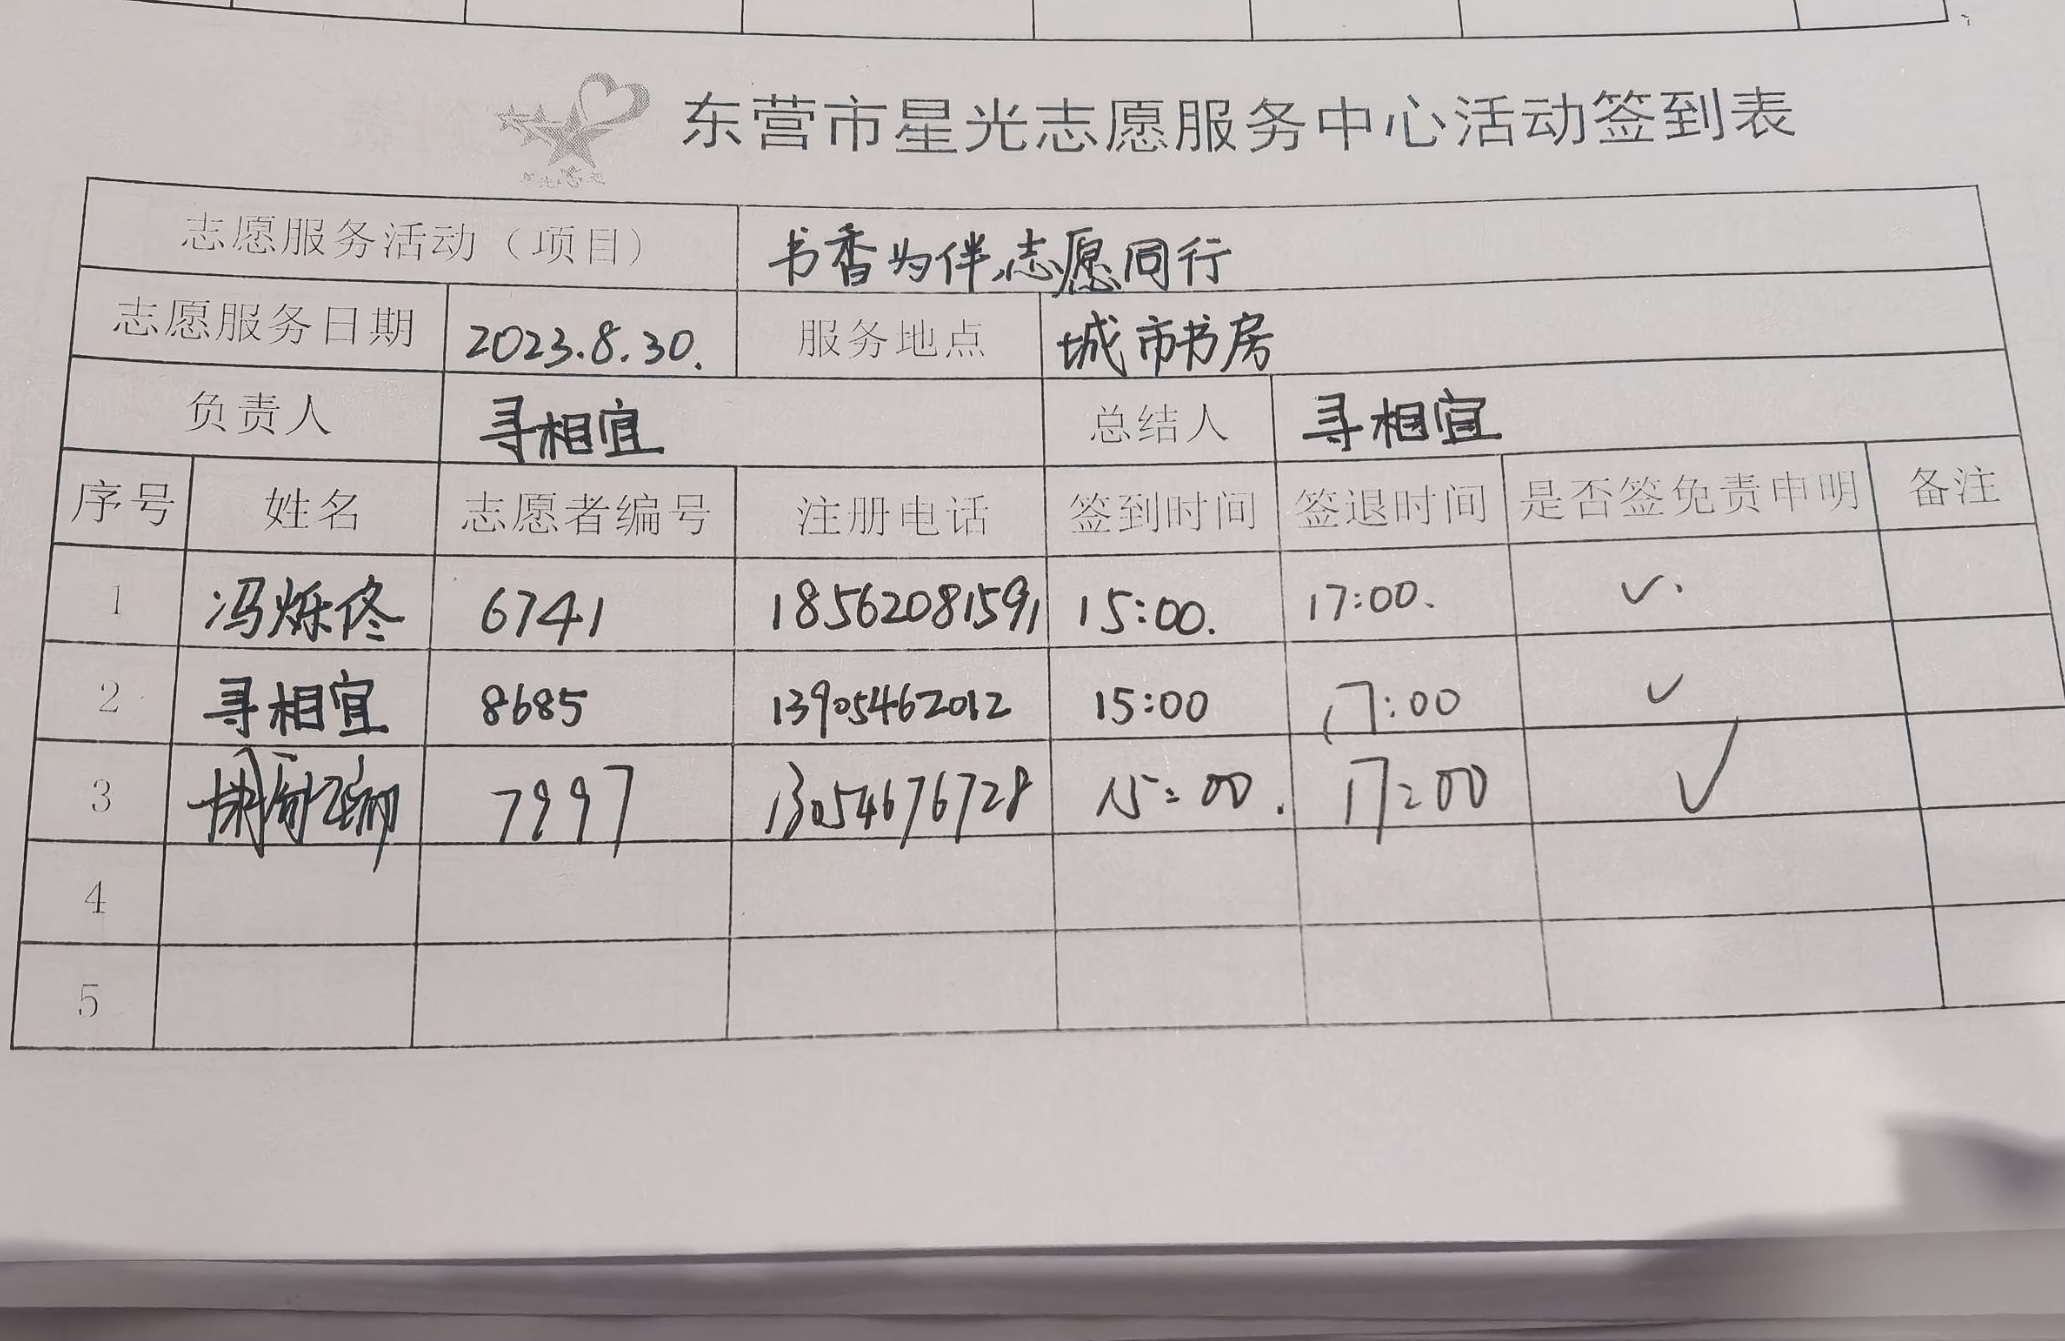 东营市星光志愿服务中心活动签到表
志愿服务活动（项目） 书香为伴，志愿同行
志愿服务日期 2023.8.30. 服务地点 城市书房
负责人 寻相宜 总结人 寻相宜
序号 姓名 志愿者编号 注册电话 签到时间 签退时间 是否签免责申明 备注
1 冯烁佟 6741 18562081591 15:00. 17:00. ✓.
2 寻相宜 8685 13905462012 15:00 17:00 ✓
3 7997 13054676728 15:00. 17:00 ✓
4
5